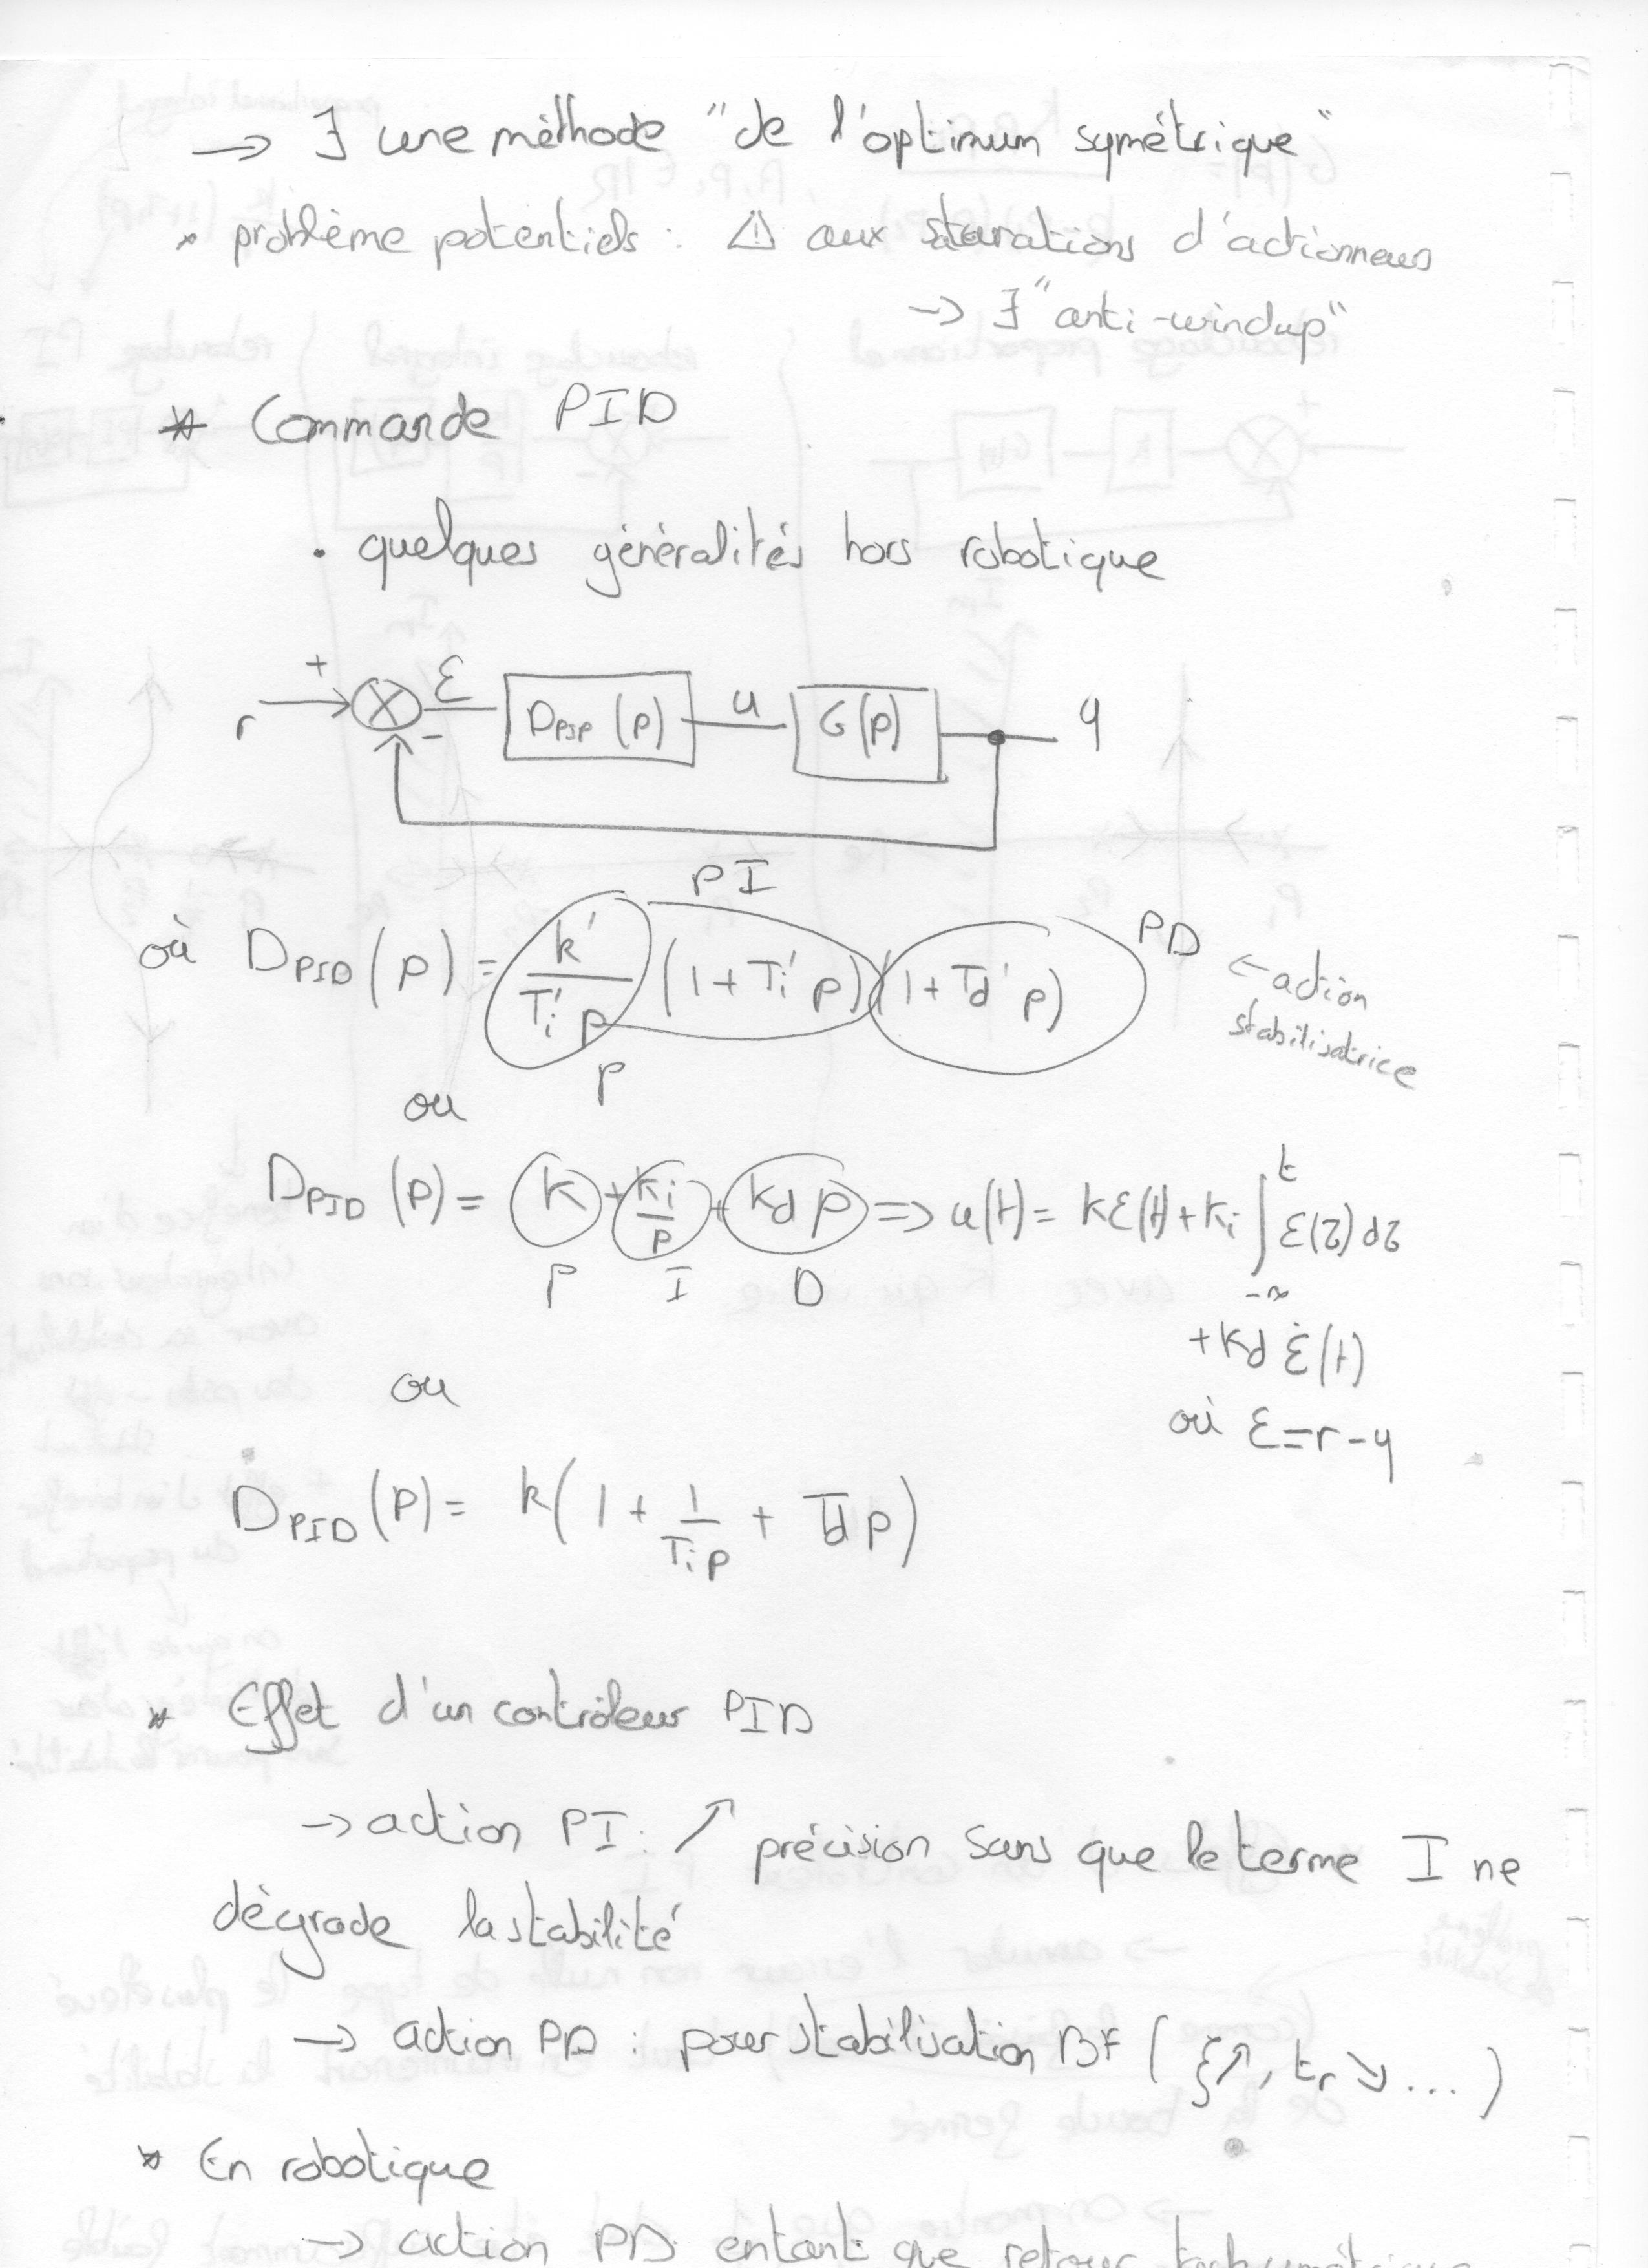 → ∃ une méthode "de l'optimum symétrique"
• problème potentiels : ⚠ aux saturations d'actionneurs
→ ∃ "anti-windup"
* Commande PID
• quelques généralités hors robotique
r + - ε D_PID (p) u G(p) q
PI
où D_PID(p) = k'/(Ti' p) (1 + Ti' p)(1 + Td' p) PD ← action
stabilisatrice
P
ou
D_PID (p) = k + ki/p + kd p => u(t) = kε(t) + ki ∫_{-∞}^{t} ε(τ) dτ
P I D
+ kd ε̇(t)
ou
où ε = r - q
D_PID (p) = k(1 + 1/(Ti p) + Td p)
* Effet d'un contrôleur PID
→ action PI : ↗ précision sans que le terme I ne
dégrade la stabilité
→ action PD : pour stabilisation BF ( ξ↗, tr ↘ ... )
* En robotique
→ action PD entant que retour tachymétrique